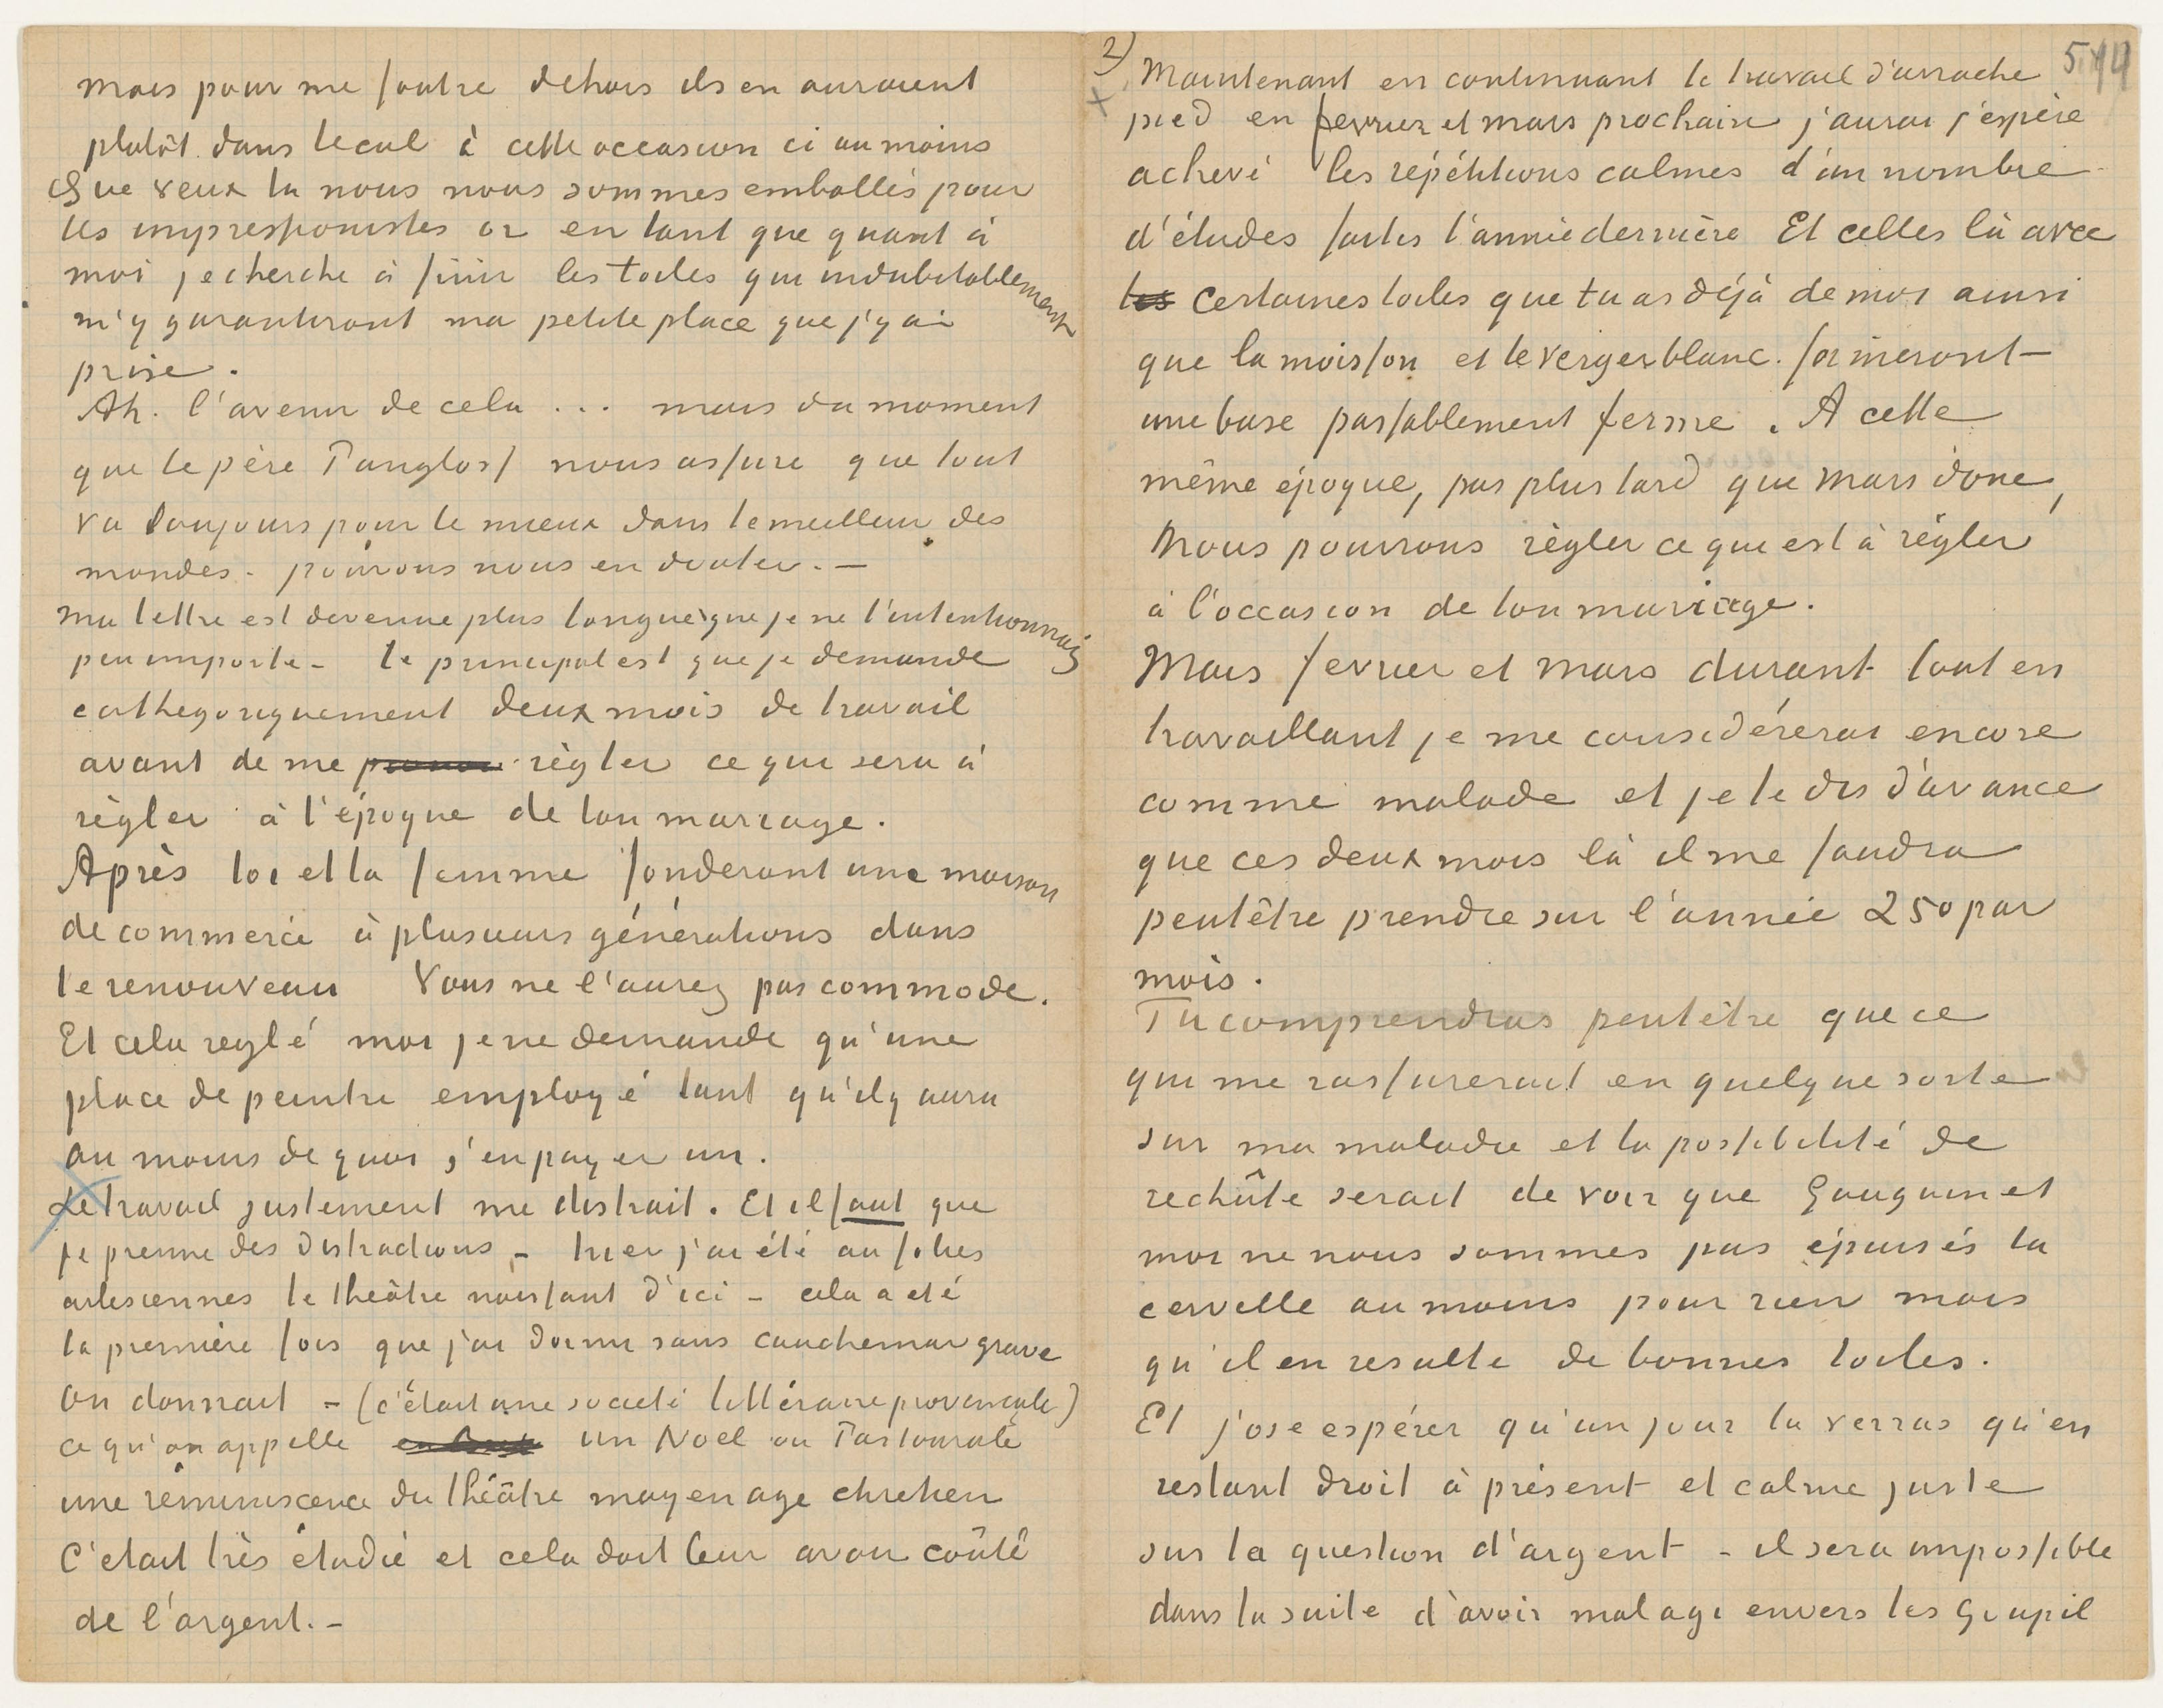 mais pour me foutre dehors ils en auraient
plutôt dans le cul à cette occasion ci au moins
Que veux tu nous nous sommes emballés pour
les impressionistes or en tant que quant à
moi je cherche à finir les toiles qui indubitablement
m'y garantiront ma petite place que j'y ai
prise.
Ah. l'avenir de cela ... mais du moment
que le père Pangloss nous assure que tout
va toujours pour le mieux dans le meilleur des
mondes - pouvons nous en douter. —
Ma lettre est devenue plus longue que je ne l'intentionnais
peu importe - le principal est que je demande
cathegoriquement deux mois de travail
avant de me règler ce que sera à
règler à l'époque de ton mariage.
Après toi et ta femme fonderont une maison
de commerce à plusieurs générations dans
le renouveau Vous ne l'aurez pas commode.
Et cela reglé moi je ne demande qu'une
place de peintre employé tant qu'il y aura
au moins de quoi s'en payer un.
Le travail justement me distrait. Et il faut que
je prenne des distractions - hier j'ai été au folies
arlesiennes le théâtre naissant d'ici - cela a eté
la première fois que j'ai dormi sans cauchemar grave
On donnait - (c'était une societé littéraire provençale)
ce qu'on appelle un Noel ou Pastourale
une réminiscence du théâtre moyen age chretien
C'etait très étudié et cela doit leur avoir coûté
de l'argent. -
2) Maintenant en continuant le travail d'arrache 544
pied en fevrier et mars prochain j'aurai j'espère
achevé les répétitions calmes d'un nombre
d'études faites l'année dernière Et celles là avec
les certaines toiles que tu as déjà de moi ainsi
que la moisson et le verger blanc. formeront
une base passablement ferme. A cette
même époque, pas plus tard que Mars donc,
nous pourrons règler ce que est à règler
à l'occasion de ton mariage.
Mais fevrier et mars durant tout en
travaillant je me considérerai encore
comme malade et je te dis d'avance
que ces deux mois là il me faudra
peutêtre prendre sur l'année 250 par
mois.
Tu comprendras peutêtre que ce
qui me rassurerait en quelque sorte
sur ma maladie et la possibilité de
rechûte serait de voir que Gauguin et
moi ne nous sommes pas épuisés la
cervelle au moins pour rien mais
qu'il en resulte de bonnes toiles.
Et j'ose espérer qu'un jour tu verras qu'en
restant droit à présent et calme juste
sur la question d'argent - il sera impossible
dans la suite d'avoir mal agi envers les Goupil